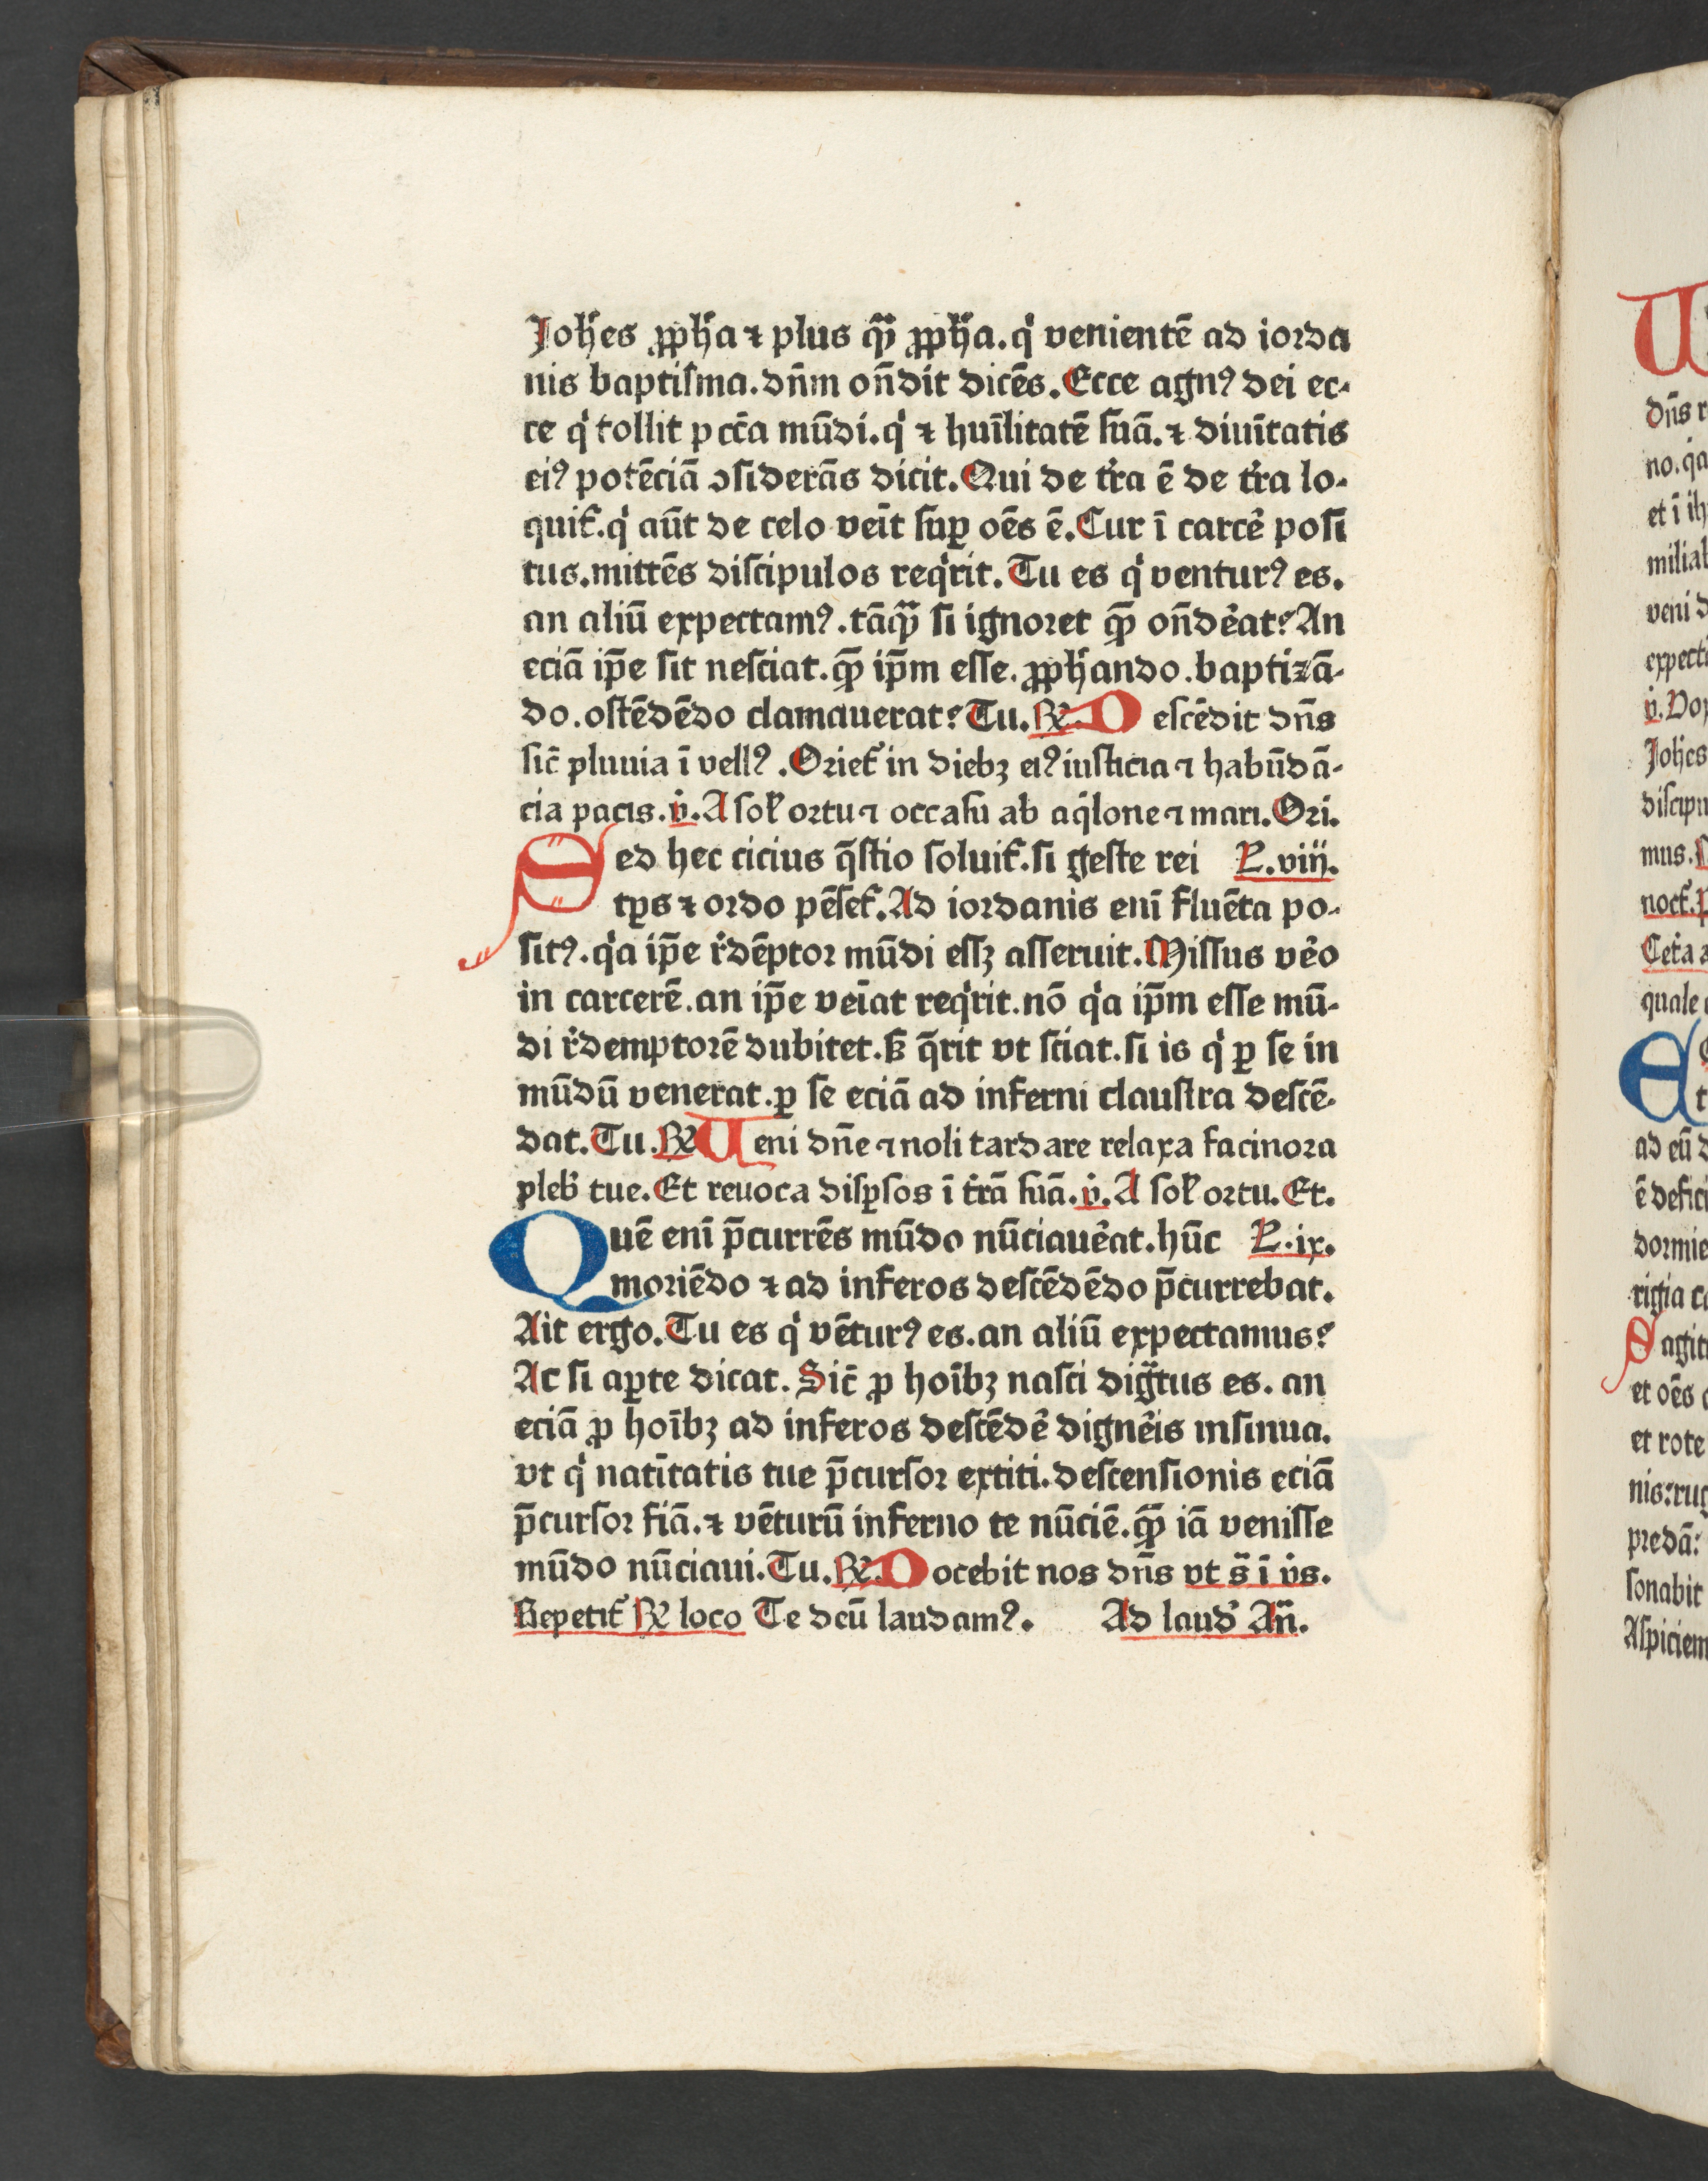 Joh̄es ꝓph̄a ⁊ plus qͣ̄ ꝓph̄a. qͥ venientē ad iorda
nis baptiſma. dn̄m on̄dit dicēs. Ecce agnꝰ dei ec-
ce qͥ tollit pcc̄a mūdi. qͥ ⁊ huīlitatē ſuā. ⁊ diuītatis
eiꝰ potēciā ↄſiderās dicit. Qui de tr̄a ē de tr̄a lo-
quit᷑. qͥ aūt de celo veīt ſuꝑ oēs ē. Cur ī carcē poſi
tus. mittēs diſcipulos reqͥrit. Tu es qͥ venturꝰ es.
an aliū expectamꝰ. tāqͣ̄ ſi ignoret qͣ̄ on̄dēat? An
eciā ip̄e ſit neſciat. qͣ̄ ip̄m eſſe. ꝓph̄ando. baptizā-
do. oſtēdēdo clamauerat? Tu. ℟. Deſcēdit dn̄s
ſic̄ pluuia ī vellꝰ. Oriet᷑ in diebꝫ eiꝰ iuſticia ⁊ habūdā-
cia pacis. v̇. A ſol̕ ortu ⁊ occaſu ab aqͥlone ⁊ mari. Ori.
Sed hec cicius q̄ſtio ſoluit᷑. ſi geſte rei L. viii.
tp̄s ⁊ ordo pēſet᷑. Ad iordanis enī fluēta po-
ſitꝰ. qͥa ip̄e r̄dēptor mūdi eſſꝫ aſſeruit. Miſſus vēo
in carcerē. an ip̄e veīat reqͥrit. nō qͥa ip̄m eſſe mū-
di r̄demptorē dubitet. ſꝫ q̄rit vt ſciat. ſi is qͥ ꝑ ſe in
mūdū venerat. ꝑ ſe eciā ad inferni clauſtra deſcē-
dat. Tu. ℟ Ueni dn̄e ⁊ noli tardare relaxa facinora
pleb̕ tue. Et reuoca diſꝑſos ī tr̄ā ſuā. v̇. A ſol̕ ortu. Et.
Quē enī p̄currēs mūdo nūciauēat. hūc L. ix.
moriēdo ⁊ ad inferos deſcēdēdo p̄currebat.
Ait ergo. Tu es qͥ vēturꝰ es. an aliū expectamus?
Ac ſi aꝑte dicat. Sic̄ ꝓ hoībꝫ naſci digͣ̄tus es. an
eciā ꝓ hoībꝫ ad inferos deſcēdē dignēis inſinua.
vt qͥ natītatis tue p̄curſor extiti. deſcenſionis eciā
p̄curſor fiā. ⁊ vēturū inferno te nūciē. qͣ̄ iā veniſſe
mūdo nūciaui. Tu. ℟. Docebit nos dn̄s vt s̄ ī v̇s.
Repetit᷑ ℟ loco Te deū laudamꝰ. Ad laud̕ An̄.